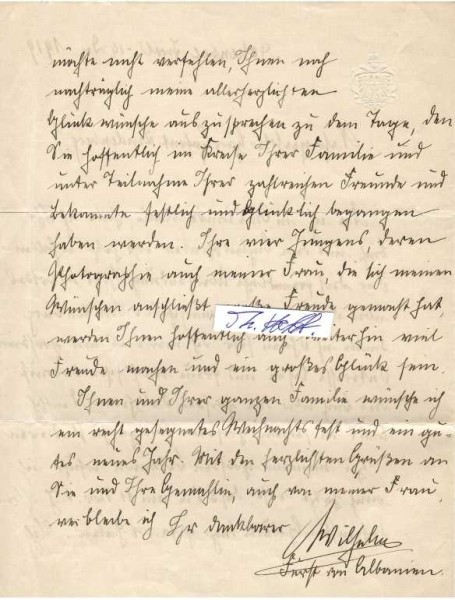 möchte nicht verfehlen, Ihnen noch
nachträglich meine allerherzlichsten
Glückwünsche auszusprechen zu dem Tage, den
Sie hoffentlich im Kreise Ihrer Familie und
unter Teilnahme Ihrer zahlreichen Freunde und
Bekannte festlich und glücklich begangen
haben werden. Ihre vier Jungens, deren
Photographie auch meiner Frau, die sich meinen
Wünschen anschließt Freude gemacht hat,
werden Ihnen hoffentlich auch weiterhin viel
Freude machen und ein großes Glück sein.
Ihnen und Ihrer ganzen Familie wünsche ich
ein recht gesegnetes Weihnachtsfest und ein gu-
tes neues Jahr. Mit den herzlichsten Grüßen an
Sie und Ihre Gemahlin, auch von meiner Frau,
verbleibe ich Ihr dankbarer
Wilhelm
Fürst von Albanien.